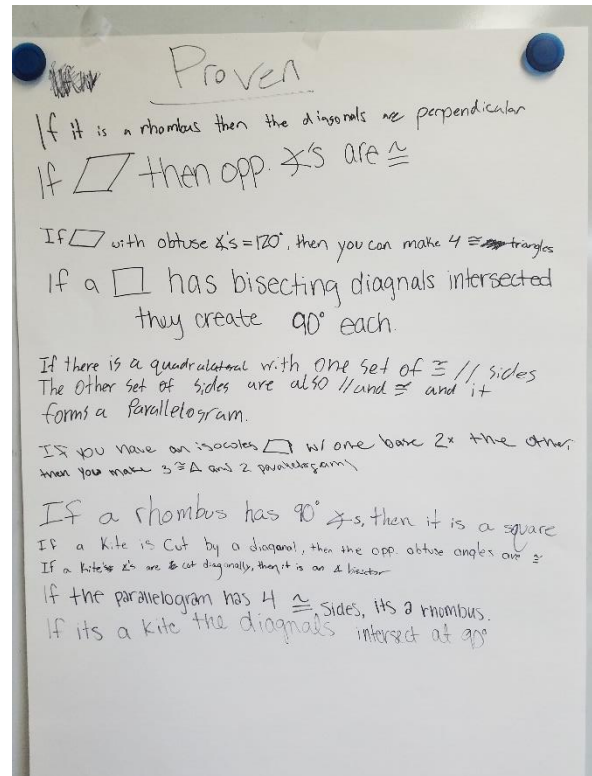 Proven
If it is a rhombus then the diagonals are perpendicular
If ▱ then opp. ∡'s are ≅
If ▱ with obtuse ∡'s = 120°, then you can make 4 ≅ triangles
If a □ has bisecting diagnals intersected
they create 90° each.
If there is a quadralateral with one set of ≅ // sides
The other set of sides are also // and ≅ and it
forms a Parallelogram.
If you have an isocoles ⏢ w/ one base 2x the other,
then you make 3 ≅ Δ and 2 paralelograms
If a rhombus has 90° ∡s, then it is a square
If a kite is cut by a diagonal, then the opp. obtuse angles are ≅
If a kite's ∡'s are cut diagonally, then it is an ∡ bisector
If the parallelogram has 4 ≅ sides, its a rhombus.
If its a kite the diagnals intersect at 90°